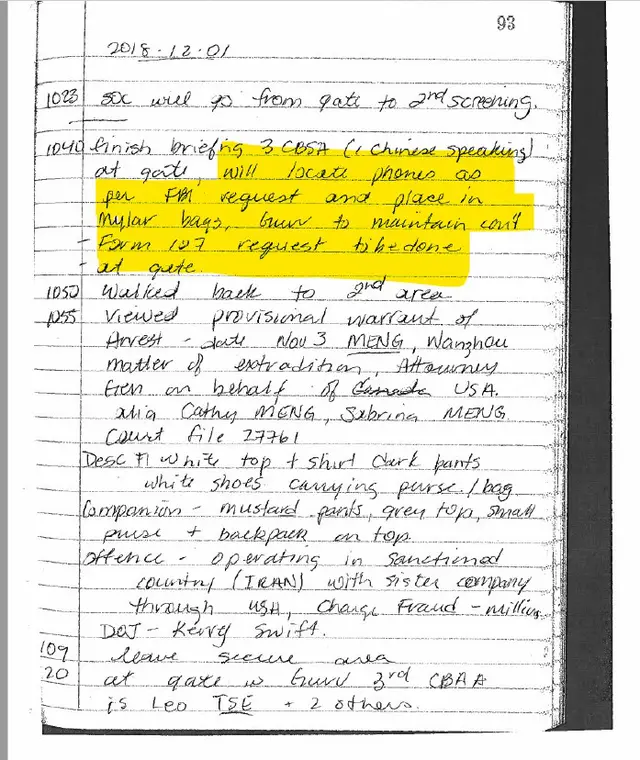 93
2018.12.01
1023 SOC will go from gate to 2nd screening.
1040 finish briefing 3 CBSA (1 Chinese speaking)
at gate, will locate phones as
per FBI request and place in
mylar bags, to maintain con't
- Form 127 request to be done
- at gate.
1050 Walked back to 2nd area
1055 Viewed provisional warrant of
Arrest - date Nov 3 MENG, Wanzhou
matter of extradition, Attorney
Gen on behalf of Canada USA.
alia Cathy MENG, Sabrina MENG
Court file 27761
Desc F1 white top + shirt dark pants
white shoes carrying purse/bag
Companion - mustard pants, grey top, small
purse + backpack on top.
Offence - operating in Sanctioned
country (IRAN) with sister company
through USA, Charge Fraud - millions
DOJ - Kerry Swift.
109 leave secure area
20 at gate 3rd
is Leo TSE + 2 others.